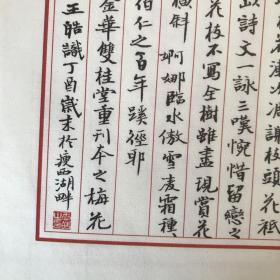 枝頭花祇
詩文一詠三嘆惋惜留戀之
花枝不寫全樹雖盡現賞花
橫斜婀娜臨水傲雪凌霜種
伯仁之百年蹊徑耶
金華雙桂堂重刊本之梅花
王皓識丁酉歲末於瘦西湖畔